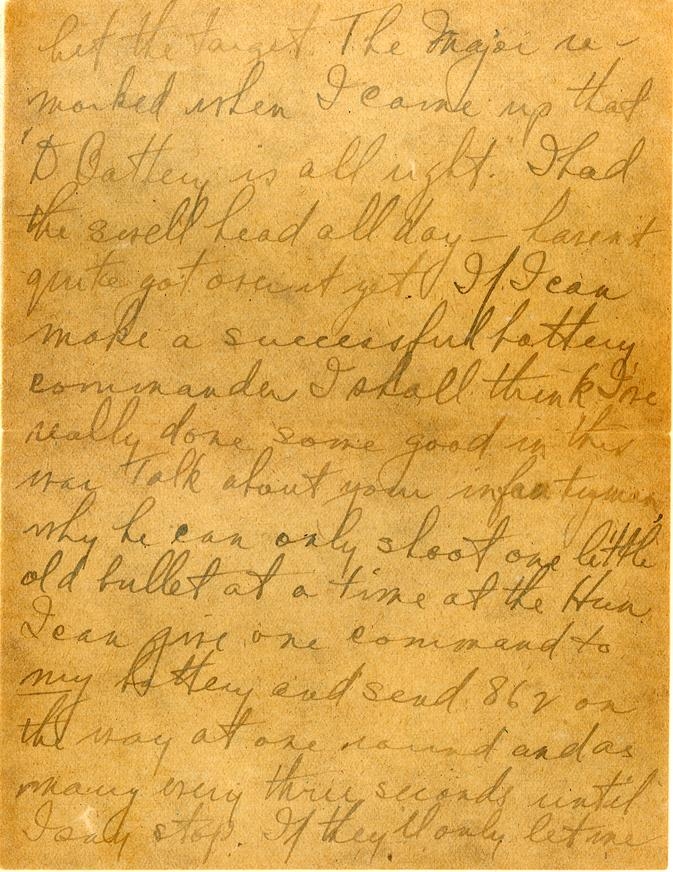 hit the target. The Major re-
marked when I came up that
"D Battery is all right." I had
the swell head all day — haven't
quite got over it yet. If I can
make a successful battery
commander I shall think I've
really done some good in this
war. Talk about your infantryman,
why he can only shoot one little
old bullet at a time at the Hun.
I can give one command to
my battery and send 862 on
the way at one round and as
many every three seconds until
I say stop. If they'll only let me